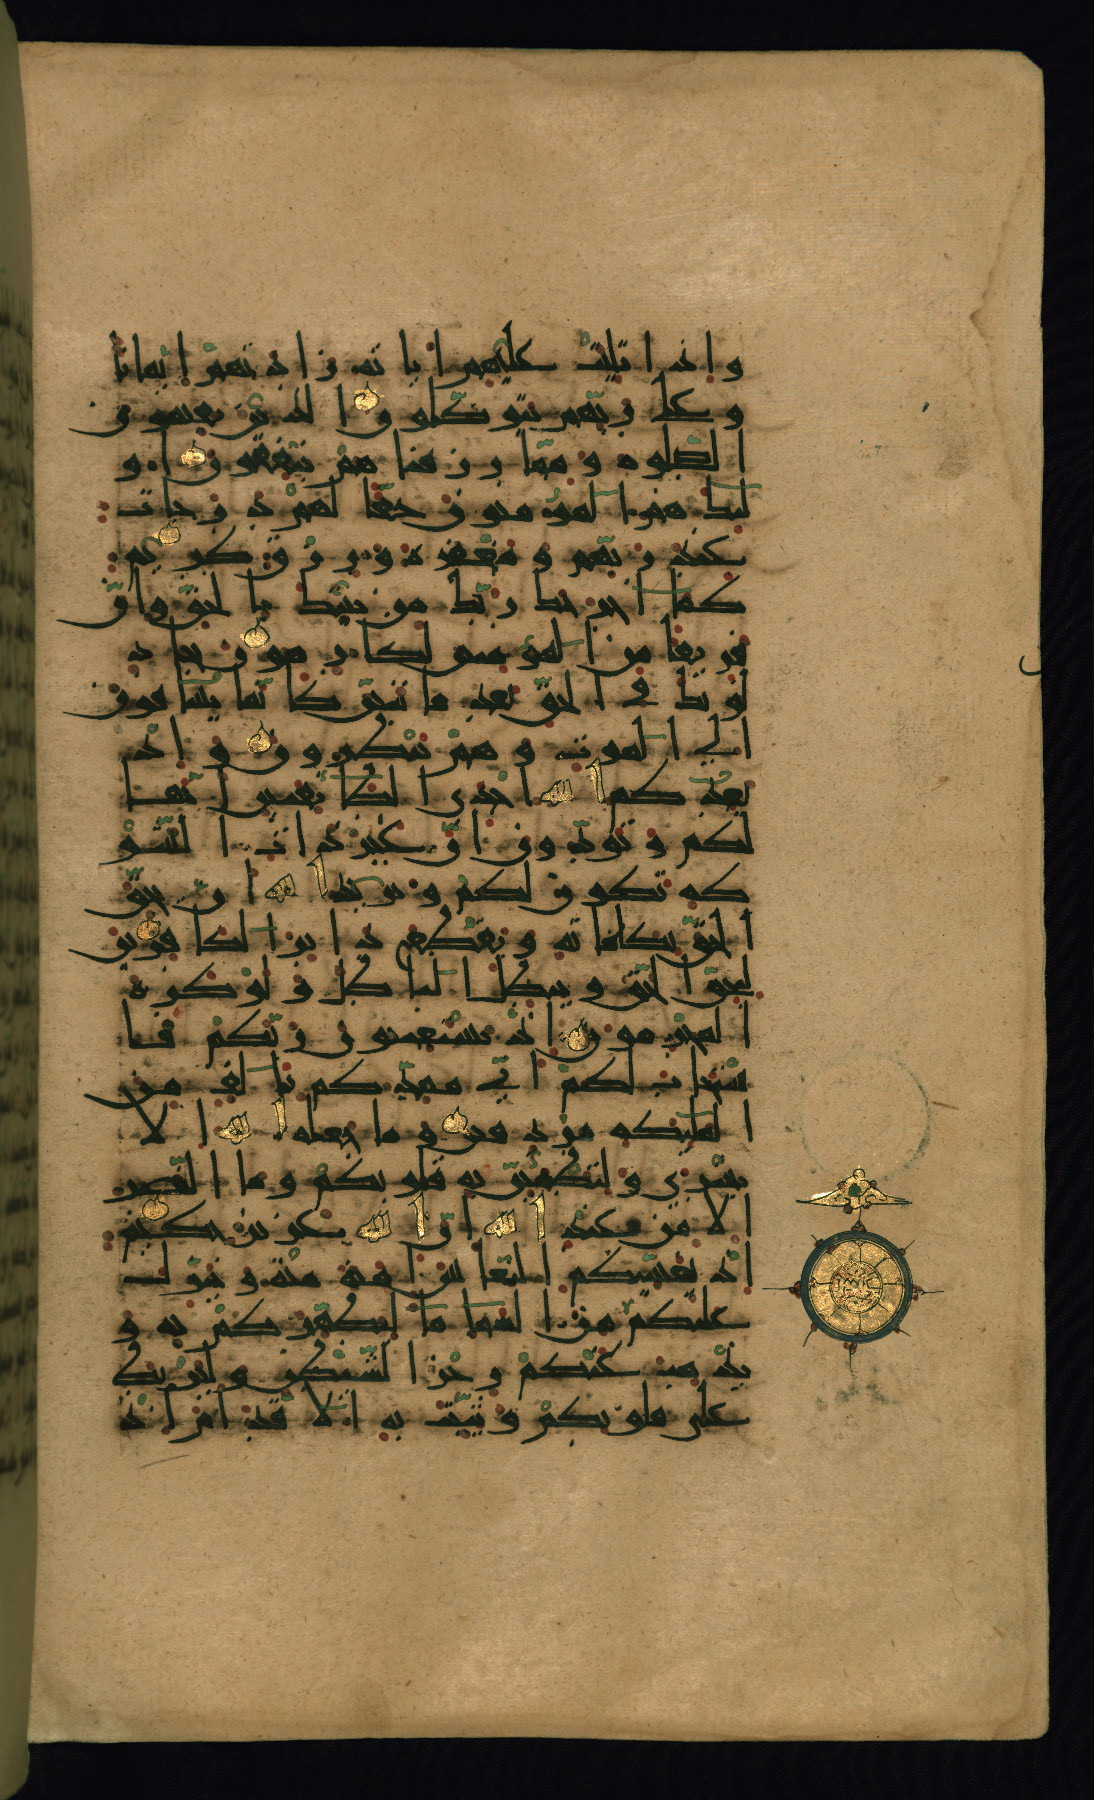 و اذا تليت عليهم اياته زادتهم ايمانا
و على ربهم يتوكلون الذين يقيمون
الصلوة و مما رزقناهم ينفقون او
لئك هم المومنون حقا لهم درجات
عند ربهم و مغفرة و رزق كريم
كما اخرجك ربك من بيتك بالحق وان
فريقا من المومنين لكارهون يجاد
لونك في الحق بعد ما تبين كانما يساقون
الى الموت و هم ينظرون و اذ
يعدكم الله احدى الطائفتين انها
لكم و تودون ان غير ذات الشو
كة تكون لكم و يريد الله ان يحق
الحق بكلماته و يقطع دابر الكافرين
ليحق الحق و يبطل الباطل و لو كره
المجرمون اذ تستغيثون ربكم فا
ستجاب لكم اني ممدكم بالف من
الملئكة مردفين و ما جعله الله الا
بشرى و لتطمئن به قلوبكم و ما النصر
الا من عند الله ان الله عزيز حكيم
اذ يغشيكم النعاس امنة منه و ينزل
عليكم من السماء ما ليطهركم به و
يذهب عنكم رجز الشيطن و ليربط
على قلوبكم و يثبت به الاقدام اذ